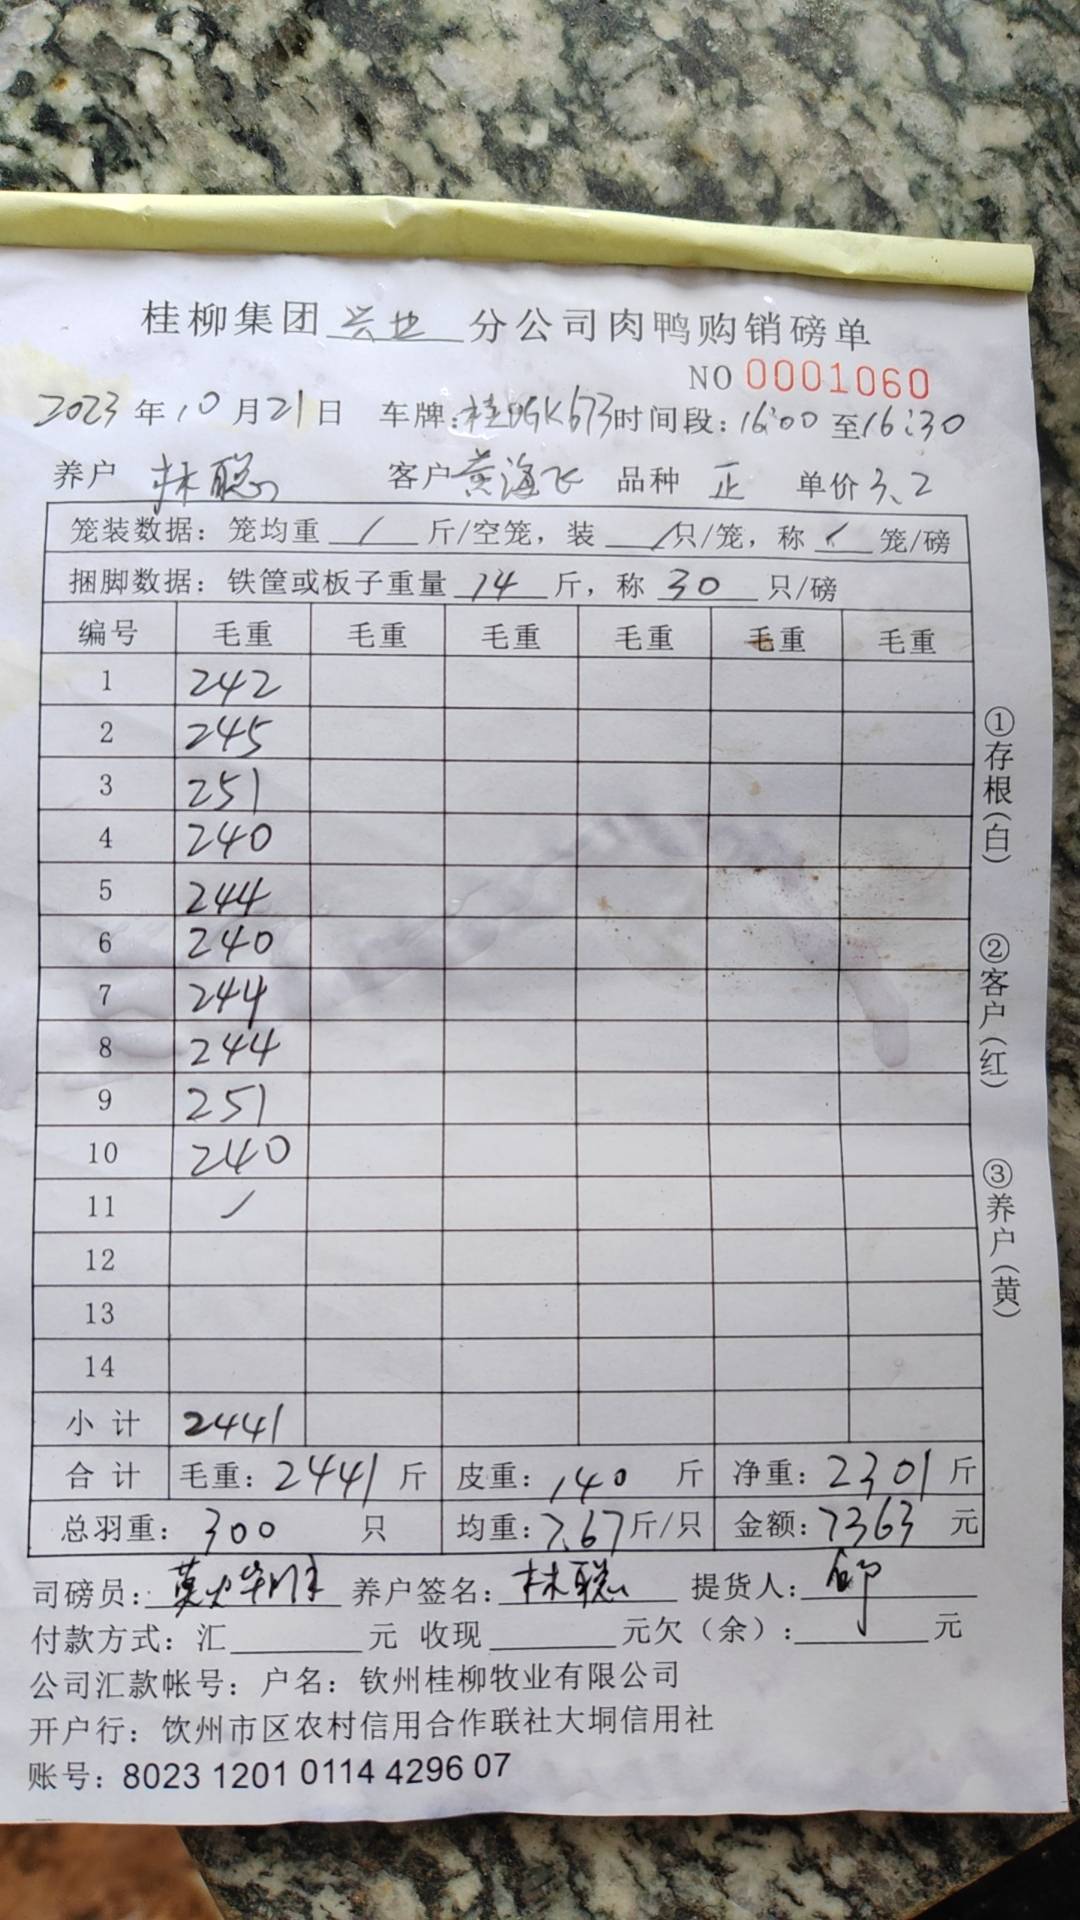 桂柳集团 兴业 分公司肉鸭购销磅单
NO 0001060
2023 年 10 月 21 日 车牌:桂 GK673 时间段:16:00 至 16:30
养户 林聪 客户 黄海飞 品种 正 单价 3.2
笼装数据:笼均重 / 斤/空笼,装 / 只/笼,称 / 笼/磅
捆脚数据:铁筐或板子重量 14 斤,称 30 只/磅
编号 毛重 毛重 毛重 毛重 毛重 毛重
1 242
2 245
3 251
4 240
5 244
6 240
7 244
8 244
9 251
10 240
11 /
12
13
14
小计 2441
合计 毛重:2441 斤 皮重:140 斤 净重:2301 斤
总羽重:300 只 均重:7.67 斤/只 金额:7363 元
司磅员: 养户签名:林聪 提货人:
付款方式:汇 元 收现 元欠(余): 元
公司汇款帐号:户名:钦州桂柳牧业有限公司
开户行:饮州市区农村信用合作联社大垌信用社
账号:8023 1201 0114 4296 07
①存根(白)
②客户(红)
③养户(黄)